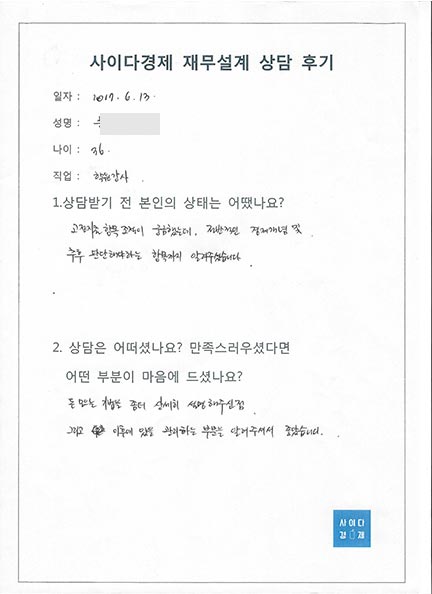 사이다경제 재무설계 상담 후기
일자 : 2017. 6. 13.
성명 :
나이 : 36.
직업 : 학원강사 .
1.상담받기 전 본인의 상태는 어땠나요?
고정지출 항목 조정이 궁금했는데, 전반적인 경제개념 및
추후 판단해야하는 항목까지 알려주셨습니다.
2. 상담은 어떠셨나요? 만족스러우셨다면
어떤 부분이 마음에 드셨나요?
돈 모으는 방법을 좀더 상세히 설명해주신점
그리고 이후에 있을 관리하는 부분을 알려주셔서 좋았습니다.
사이다
경제